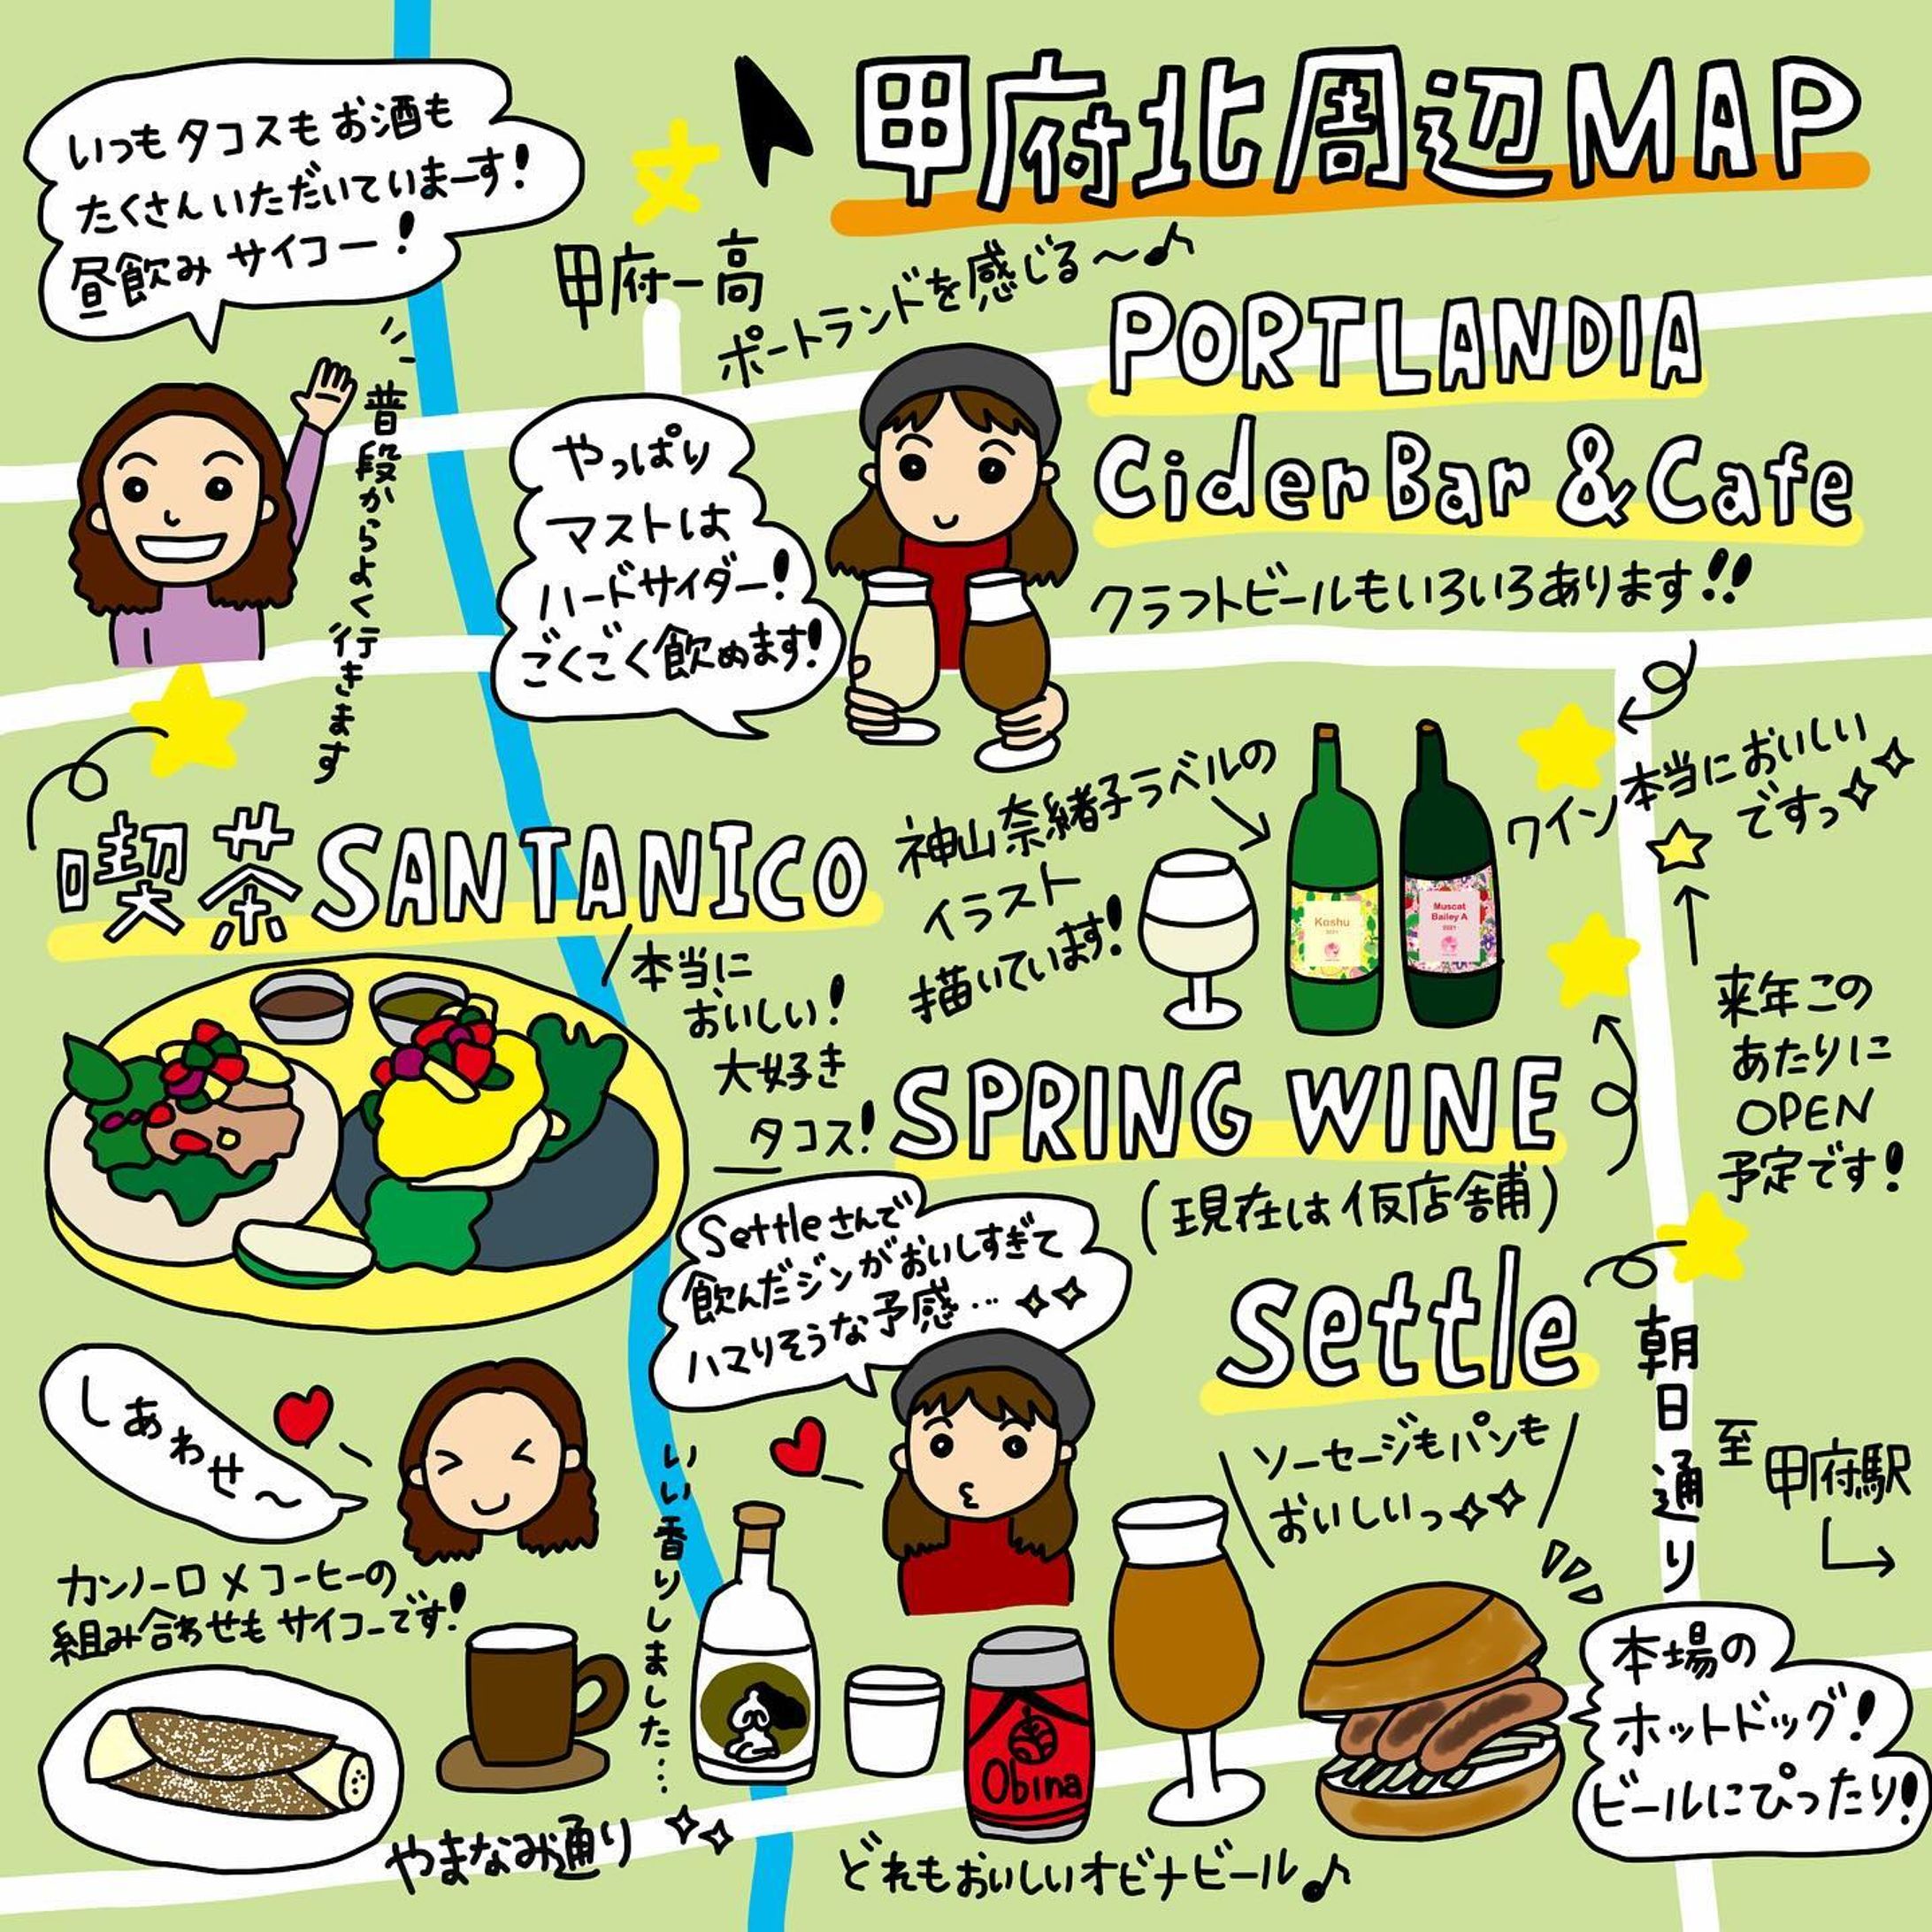 甲府北周辺MAP
いつもタコスもお酒も
たくさんいただいていまーす!
昼飲みサイコー!
普段からよく行きます
文
甲府一高
ポートランドを感じる〜♪
PORTLANDIA
Cider Bar & Cafe
クラフトビールもいろいろあります!!
やっぱり
マストは
ハードサイダー!
ごくごく飲めます!
喫茶SANTANICO
本当に
おいしい!
大好き
タコス!
神山奈緒子ラベルの
イラスト
描いています!
Koshu
2021
Muscat
Bailey A
2021
ワイン本当においしい
ですっ
SPRING WINE
(現在は仮店舗)
来年この
あたりに
OPEN
予定です!
Settleさんで
飲んだジンがおいしすぎて
ハマりそうな予感…
settle
ソーセージもパンも
おいしいっ
朝日通り
至
甲府駅
しあわせ〜
カンノーロ×コーヒーの
組み合わせもサイコーです!
いい香りしました…
Obina
本場の
ホットドッグ!
ビールにぴったり!
やまなみ通り
どれもおいしいオビナビール♪